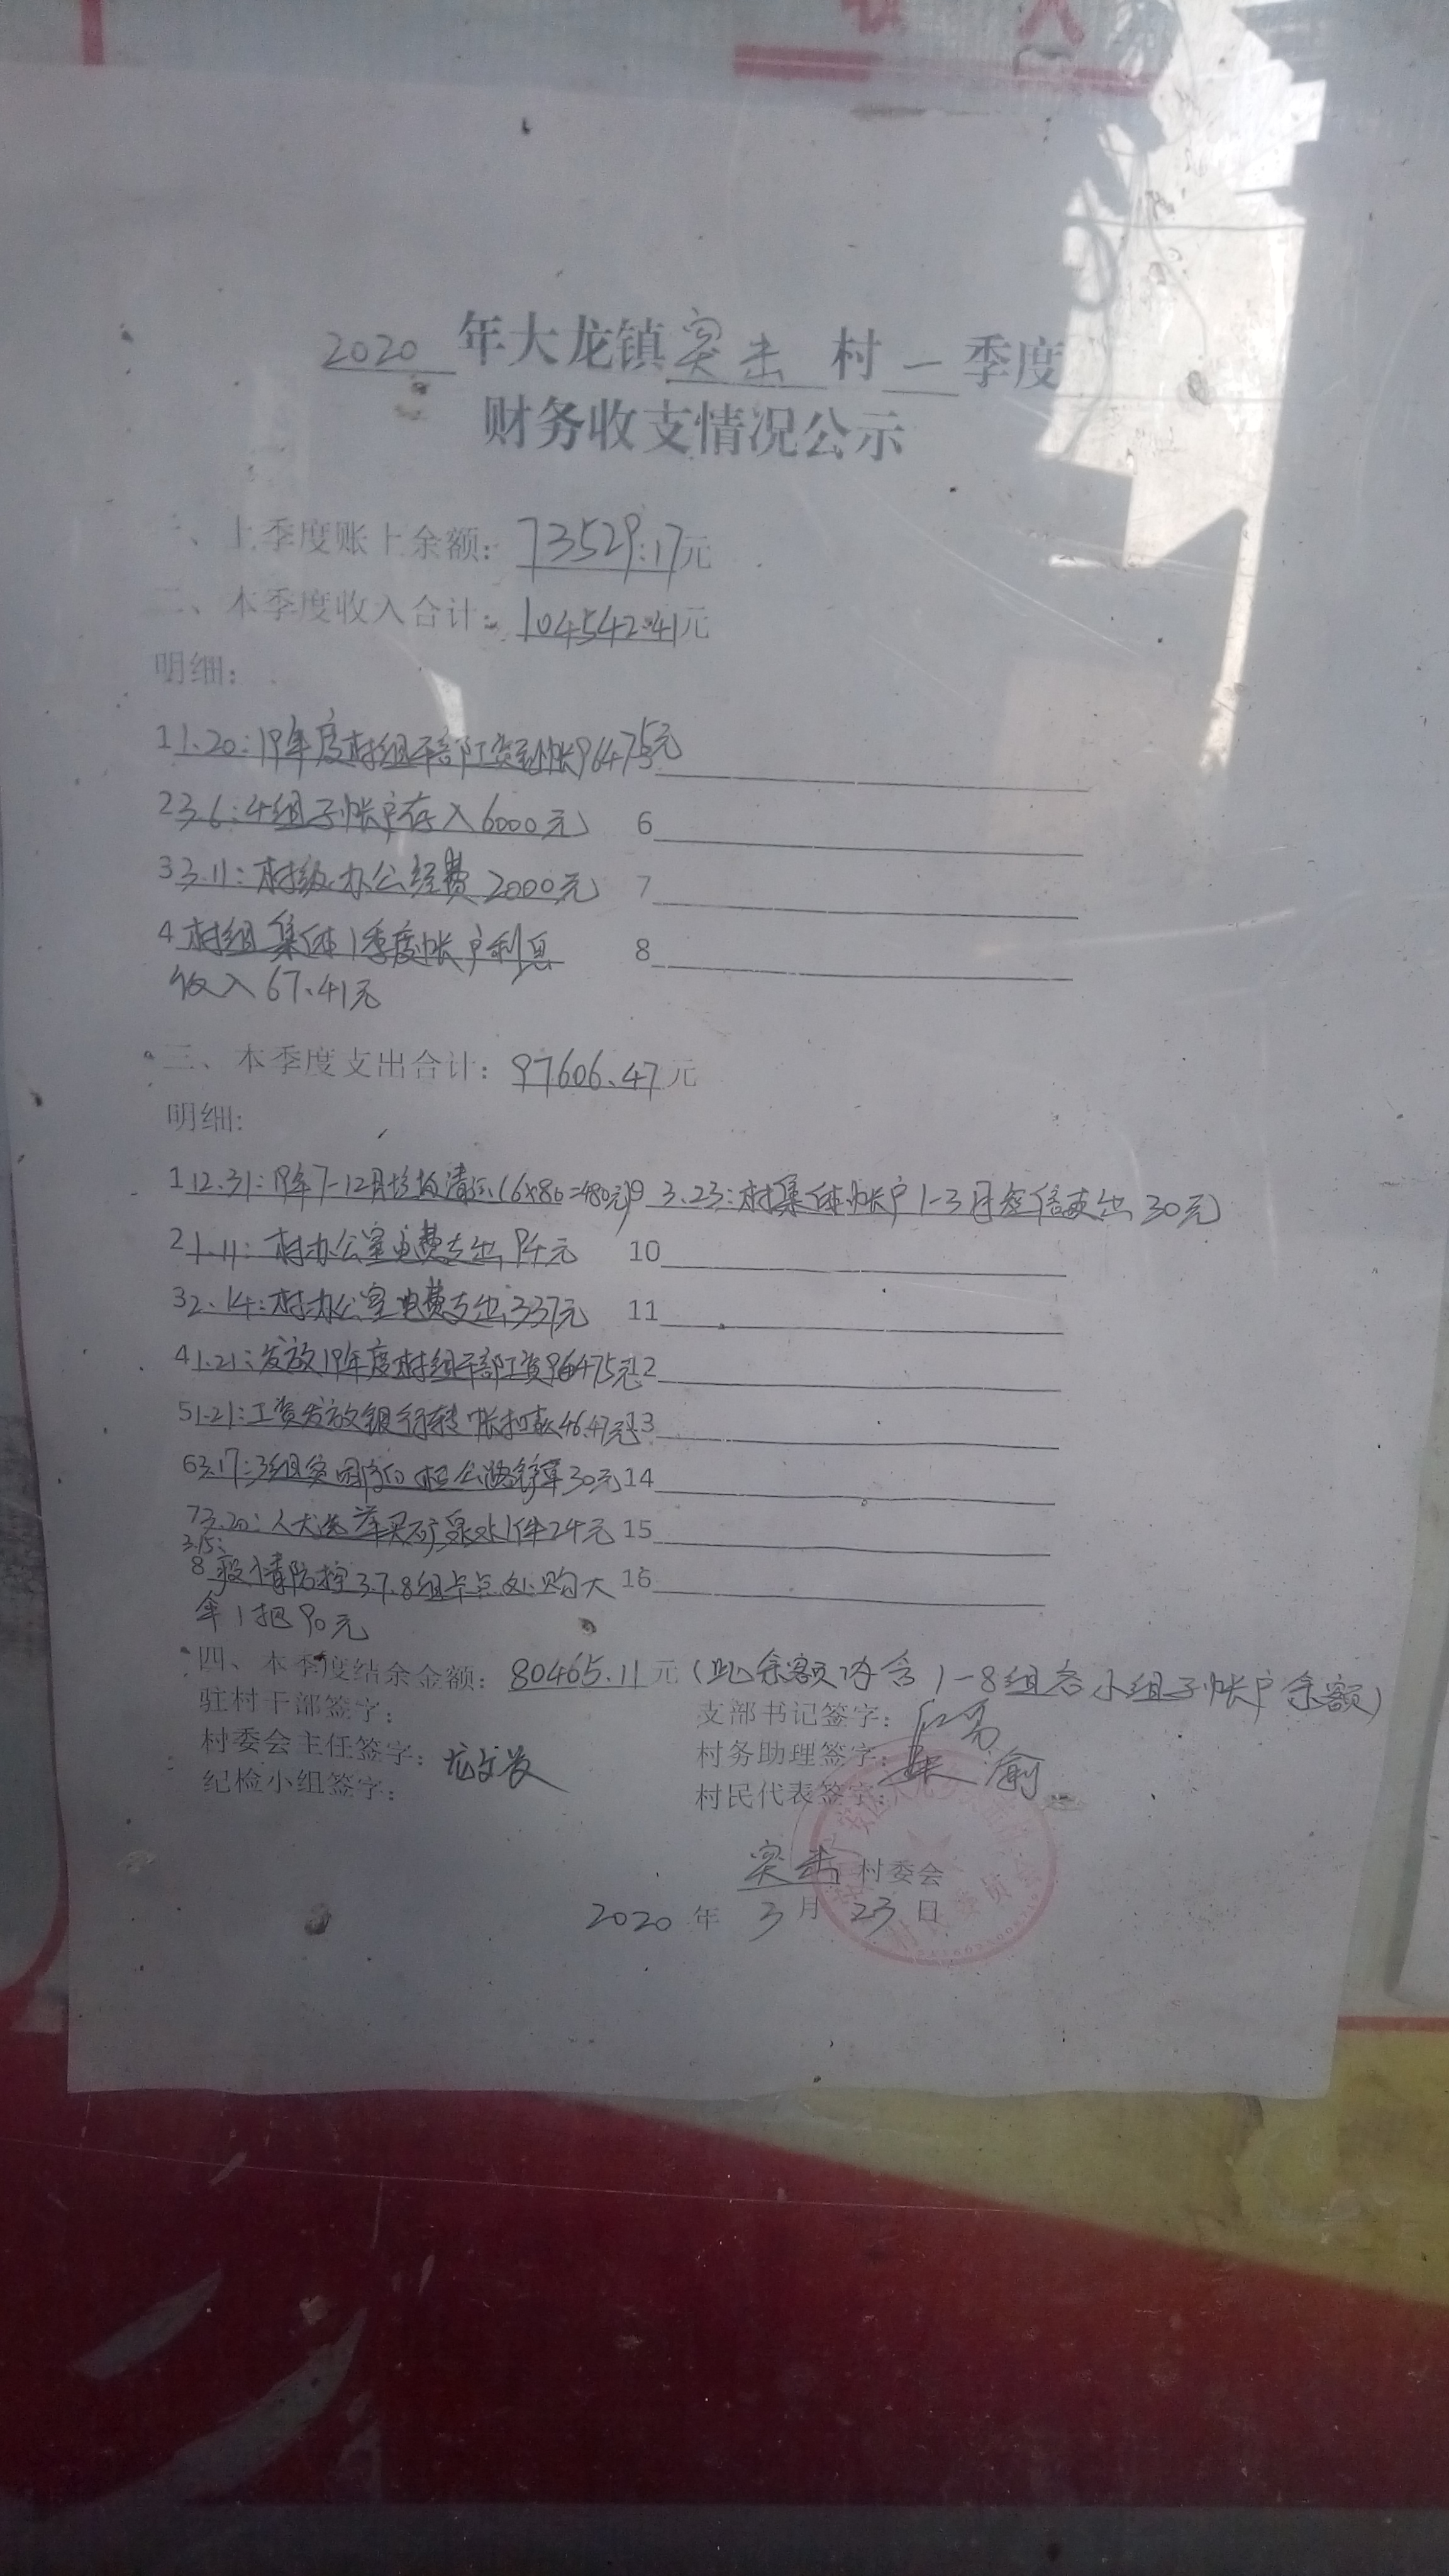 2020年大龙镇突击村一季度
财务收支情况公示
一、上季度账上余额：73529.17元
二、本季度收入合计：104542.41元
明细：
1 1.20：19年度村组干部工资到帐96475元
2 3.6：4组子帐户存入6000元 6
3 3.11：村级办公经费2000元 7
4 村组集体1季度帐户利息 8
收入67.41元
三、本季度支出合计：97606.47元
明细：
1 12.31：19年7-12月垃圾清运(6x80=480元) 9 3.23：村集体帐户1-3月短信支出30元
2 1.11：村办公室电费支出94元 10
3 2.14：村办公室电费支出337元 11
4 1.21：发放19年度村组干部工资96475元 12
5 1.21：工资发放银行转帐扣款46.47元 13
6 3.17：3组 公路 30元 14
7 3.20：人大选举买矿泉水1件24元 15
3.15：
8 疫情防控3.7.8组卡点处购大 16
伞1把90元
四、本季度结余金额：80465.11元(此余额内含1-8组各小组子帐户余额)
驻村干部签字： 支部书记签字：
村委会主任签字： 村务助理签字：张渝
纪检小组签字： 村民代表签字：
突击村委会
2020年3月23日